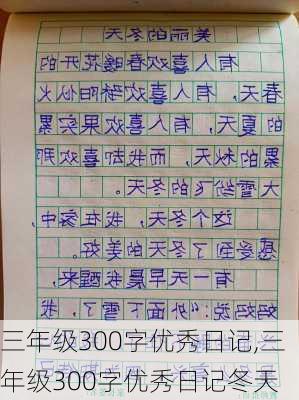 美丽的冬天
有人喜欢春暖花开的
春天,有人喜欢骄阳似火
的夏天,有人喜欢果实累
累的秋天,而我却喜欢那
大雪纷飞的冬天。
这个冬天,我在家中,
感受到了冬天的
有一天早晨我醒来,
妈妈说:“外面下雪了”,我
三年级300字优秀日记,三
年级300字优秀日记冬天